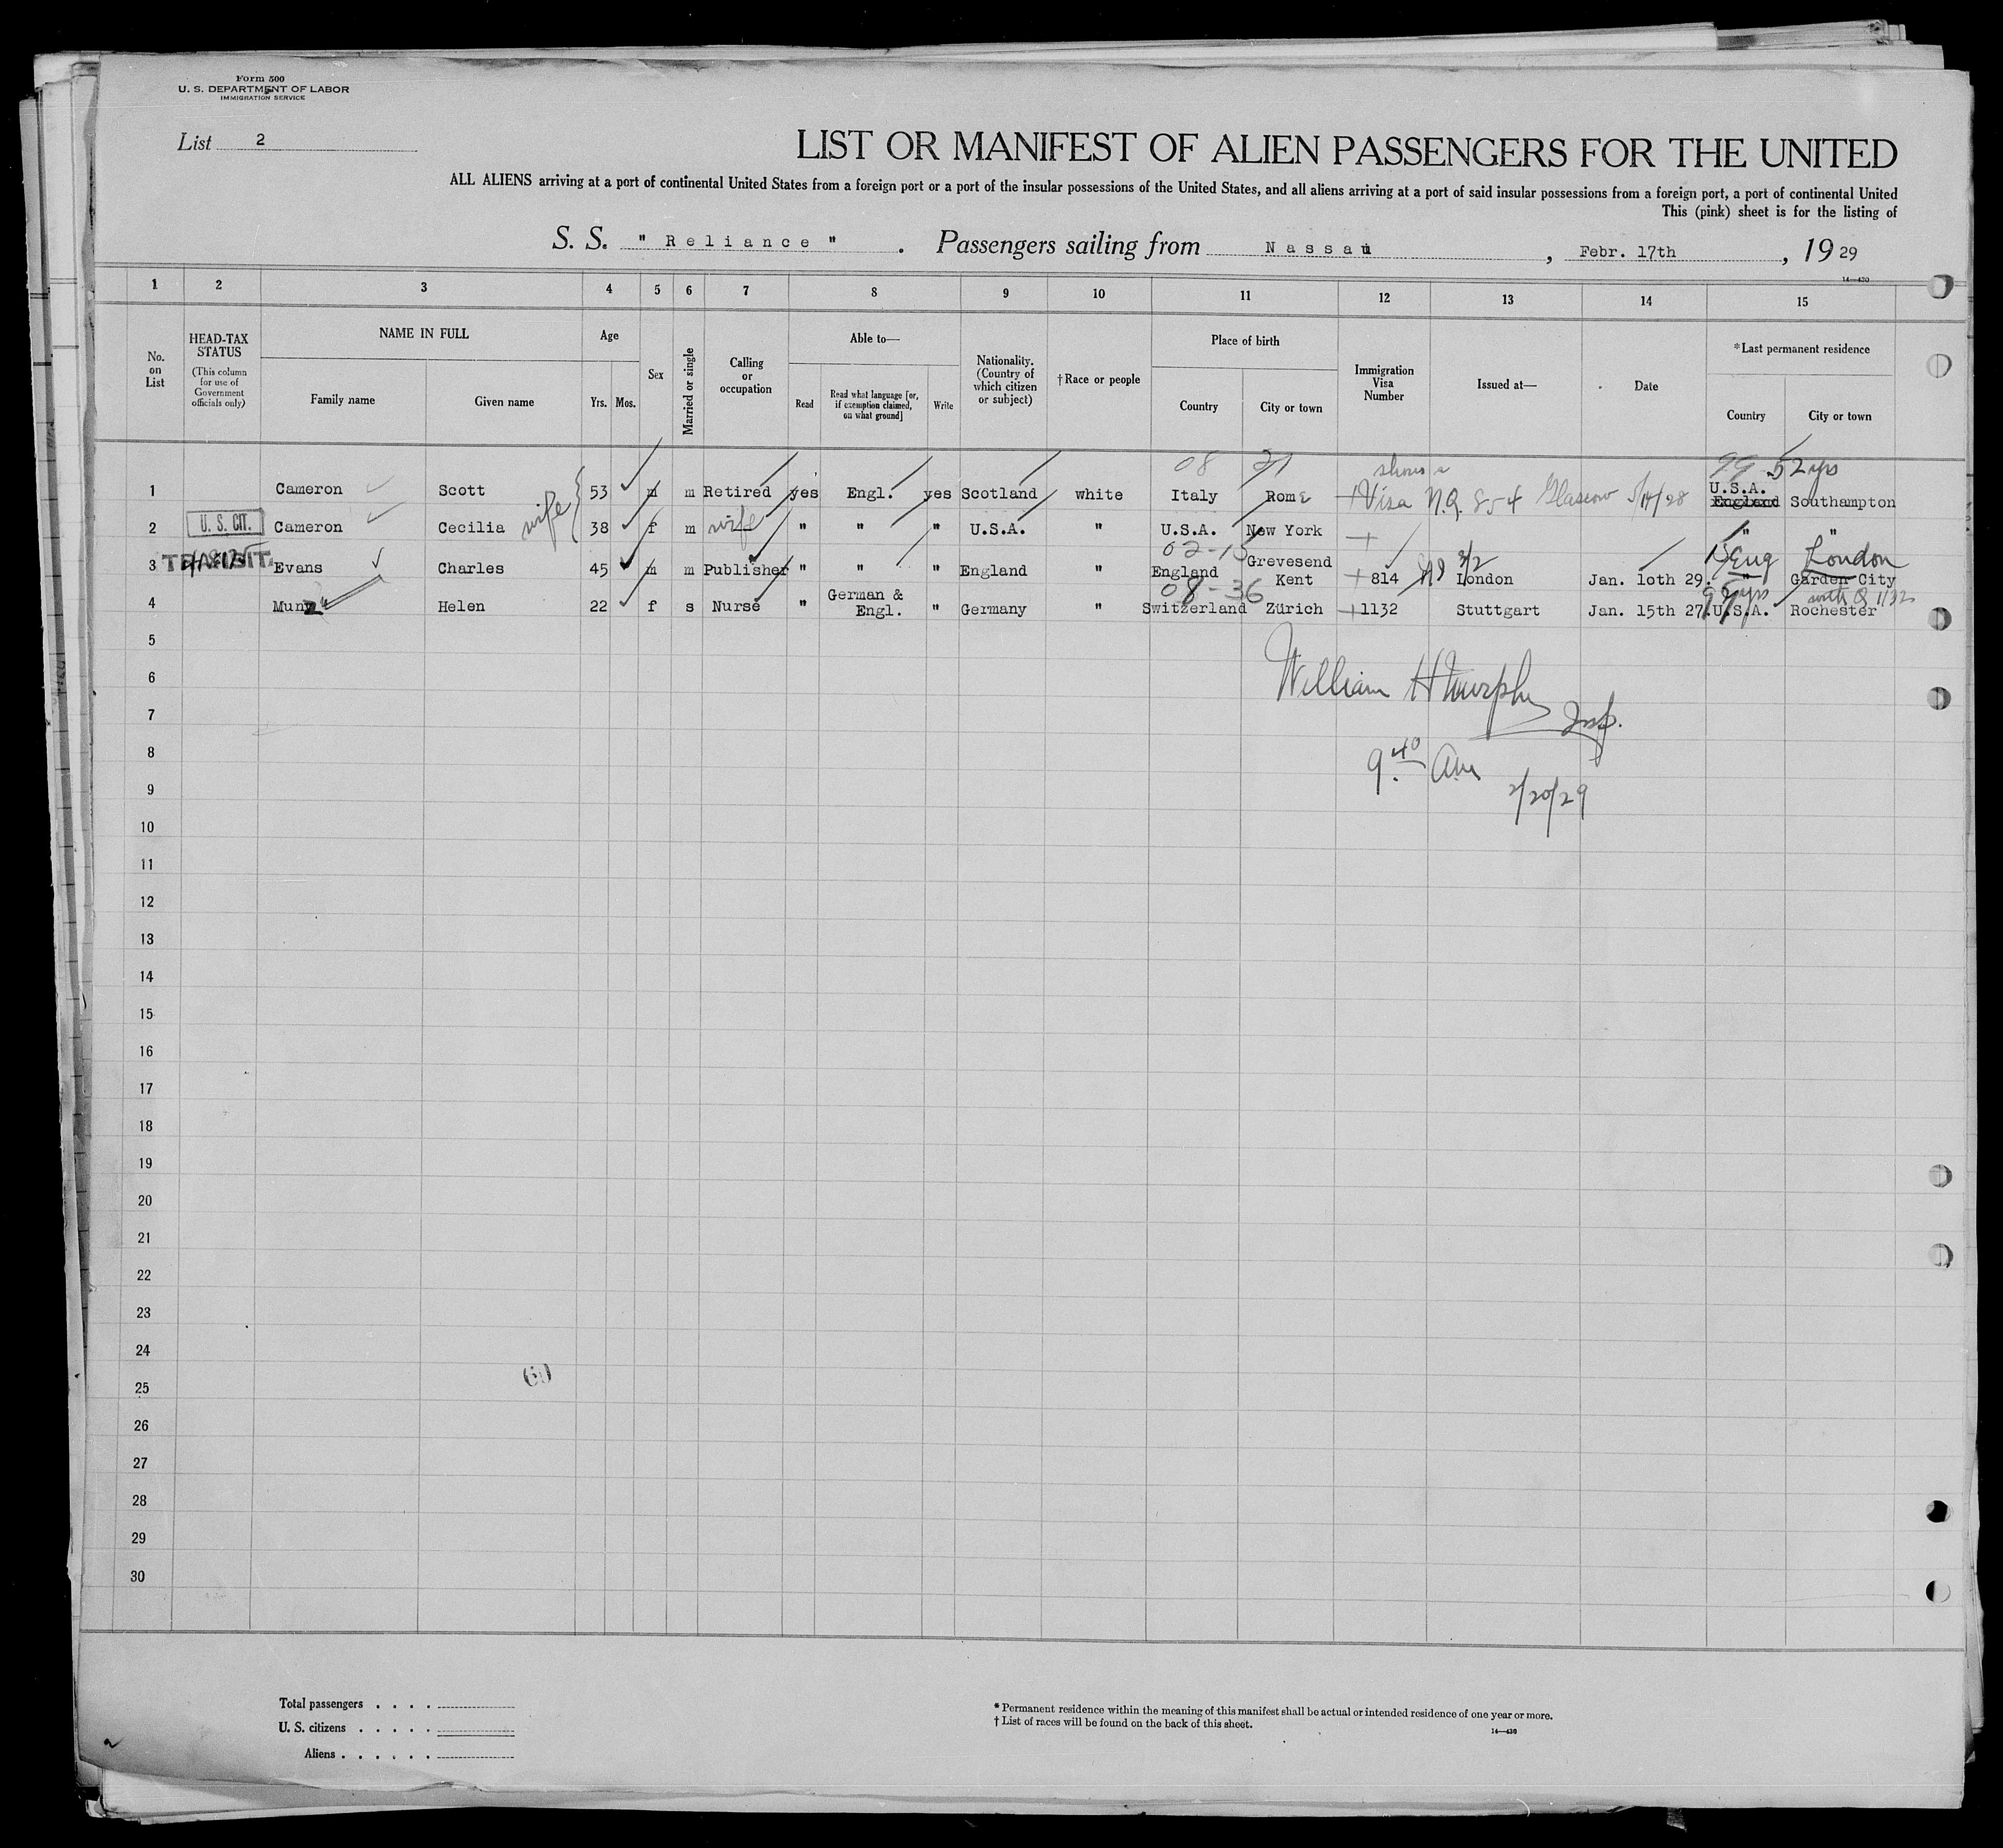 Form 500
U. S. DEPARTMENT OF LABOR
IMMIGRATION SERVICE
List 2
LIST OR MANIFEST OF ALIEN PASSENGERS FOR THE UNITED
ALL ALIENS arriving at a port of continental United States from a foreign port or a port of the insular possessions of the United States, and all aliens arriving at a port of said insular possessions from a foreign port, a port of continental United
This (pink) sheet is for the listing of
S. S. " Reliance " . Passengers sailing from Nassau , Febr. 17th , 19 29
14—430
1 2 3 4 5 6 7 8 9 10 11 12 13 14 15
No. on List
HEAD-TAX STATUS
(This column for use of Government officials only)
NAME IN FULL
Family name Given name
Age
Yrs. Mos.
Sex
Married or single
Calling or occupation
Able to—
Read
Read what language [or, if exemption claimed, on what ground]
Write
Nationality. (Country of which citizen or subject)
†Race or people
Place of birth
Country City or town
Immigration Visa Number
Issued at—
Date
*Last permanent residence
Country City or town
08 21 shows 99 52 yrs
1 Cameron Scott 53 m m Retired yes Engl. yes Scotland white Italy Rome Visa N.Q. 854 Glascow 5/14/28 U.S.A. England Southampton
wife
2 U. S. CIT. Cameron Cecilia 38 f m wife " " " U.S.A. " U.S.A. New York " "
02-15
3 TRANSIT Evans Charles 45 m m Publisher " " " England " England Grevesend Kent 814 3/2 London Jan. 10th 29. Eng London " Garden City
08-36
4 Helen 22 f s Nurse " German & Engl. " Germany " Switzerland Zürich 1132 Stuttgart Jan. 15th 27. U.S.A. Rochester
5
6
William H Murphy
7
Insp.
8
9.40 Am
9
2/20/29
10
11
12
13
14
15
16
17
18
19
20
21
22
23
24
25
60
26
27
28
29
30
Total passengers . . . .
U. S. citizens . . . . .
Aliens . . . . . .
* Permanent residence within the meaning of this manifest shall be actual or intended residence of one year or more.
† List of races will be found on the back of this sheet.
14—430